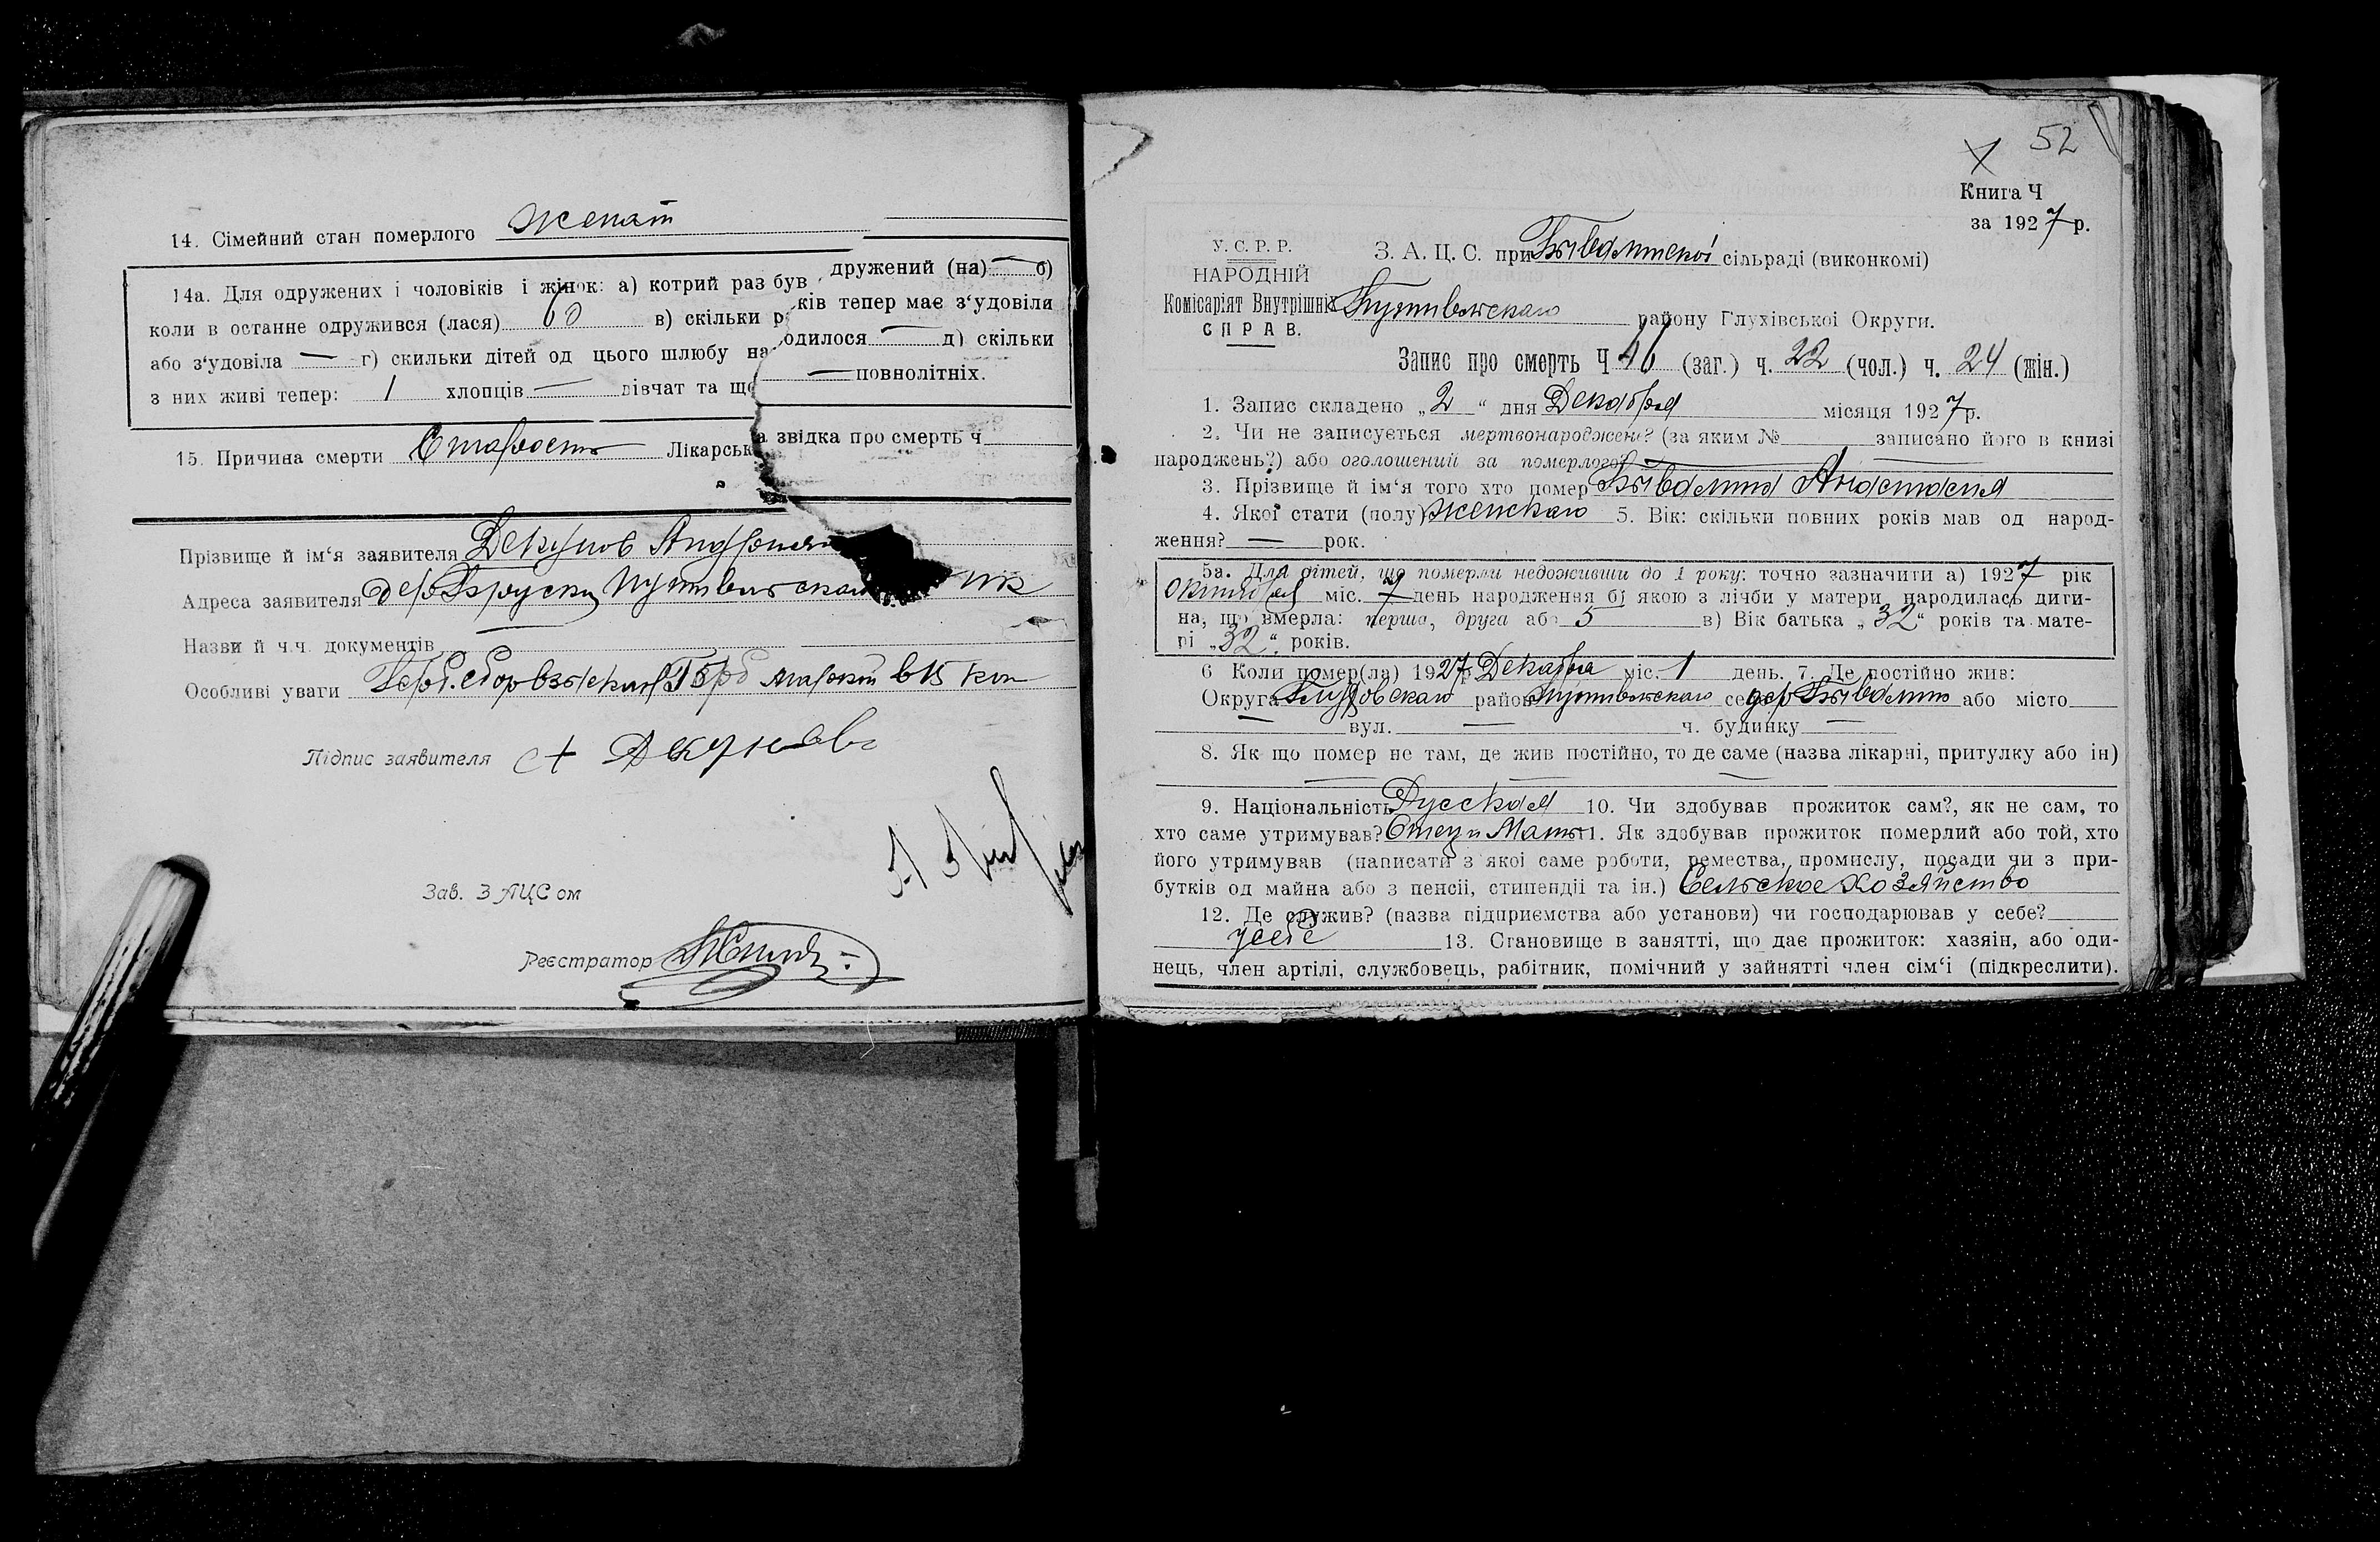 14. Сімейний стан померлого женат
14а. Для одружених і чоловіків і жінок: а) котрий раз був дружений (на) — б)
коли в останне одружився (лася) 60 в) скільки р ків тепер має з‘удовіли
або з‘удовіла — г) скильки дітей од цього шлюбу на одилося — д) скільки
з них живі тепер: 1 хлопців — дівчат та що — повнолітніх.
15. Причина смерти Старость Лікарськ а звідка про смерть ч.
Прізвище й ім‘я заявителя Декунов
Адреса заявителя дер Путивльскаго
Назви й ч.ч. документів —
Особливі уваги Герб. сбор взыскан маркой в 15 коп
Підпис заявителя Декунов
Зав. ЗАЦСом
Реєстратор
52
Книга Ч
за 1927 р.
У. С. Р. Р.
НАРОДНІЙ
Комісаріят Внутрішніх
СПРАВ.
З. А. Ц. С. при сільраді (виконкомі)
Путивльскаго району Глухівської Округи.
Запис про смерть Ч 46 (заг.) ч. 22 (чол.) ч. 24 (жін.)
1. Запис складено „2“ дня Декабря місяця 1927 р.
2. Чи не записується мертвонароджене? (за яким № записано його в книзі
народжень?) або оголошений за померлого? —
3. Прізвище й ім‘я того хто помер Анастасия
4. Якої стати (полу) женскаго 5. Вік: скільки повних років мав од народ-
ження? — рок.
5а. Для дітей, що померли недоживши до 1 року: точно зазначити а) 1927 рік
октября міс. 7 день народження б) якою з лічби у матери народилась дити-
на, що вмерла: перша, друга або 5 в) Вік батька „32“ років та мате-
рі „32“ років.
6 Коли помер(ла) 1927 р. Декабря міс. 1 день. 7. Де постійно жив:
Округа Глуховскаго район Путивльскаго село дер або місто
— вул. — ч. будинку —
8. Як що помер не там, де жив постійно, то де саме (назва лікарні, притулку або ін)
— — —
9. Національність Русская 10. Чи здобував прожиток сам?, як не сам, то
хто саме утримував? Отец и Мать 11. Як здобував прожиток померлий або той, хто
його утримував (написати з якої саме роботи, ремества, промислу, посади чи з при-
бутків од майна або з пенсії, стипендії та ін.) Сельское хозяйство
12. Де служив? (назва підприємства або установи) чи господарював у себе?
у себе 13. Становище в занятті, що дає прожиток: хазяін, або оди-
нець, член артілі, службовець, рабітник, помічний у зайнятті член сім‘і (підкреслити).